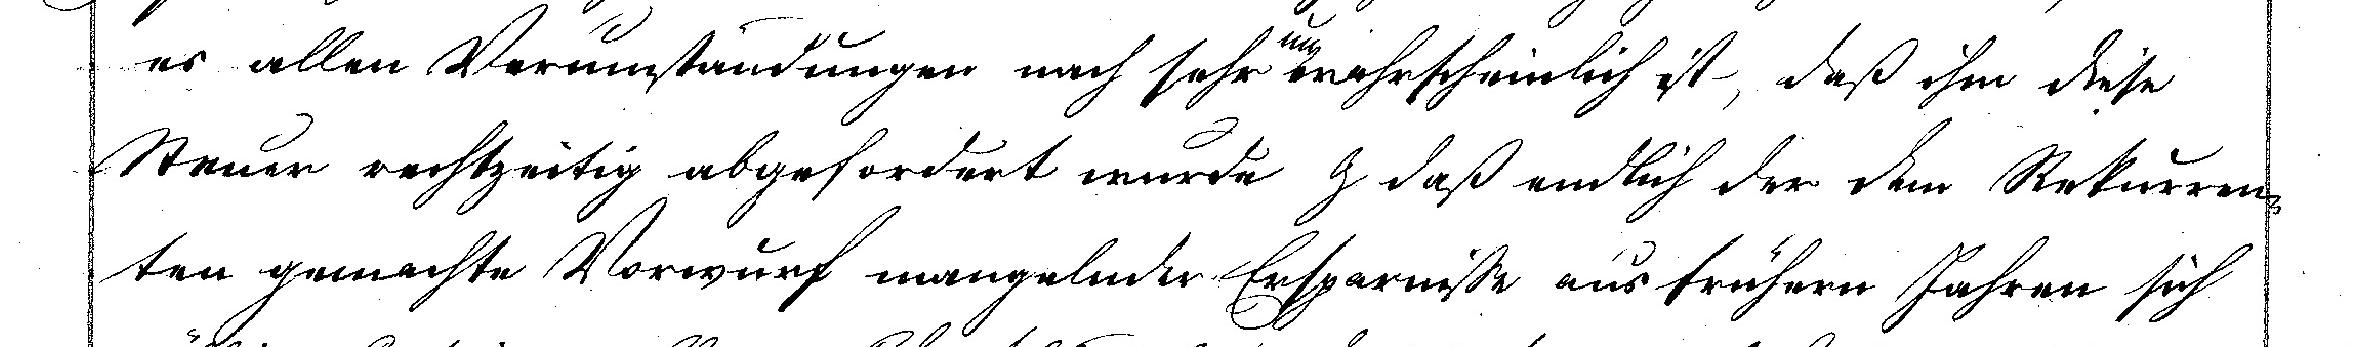 es allen Verumständungen nach sehr unwahrscheinlich ist, daß ihm diese
Steuer rechtzeitig abgefordert wurde & daß endlich der dem Rekurren-
ten gemachte Vorwurf mangelnder Ersparnisse aus frühern Jahren sich